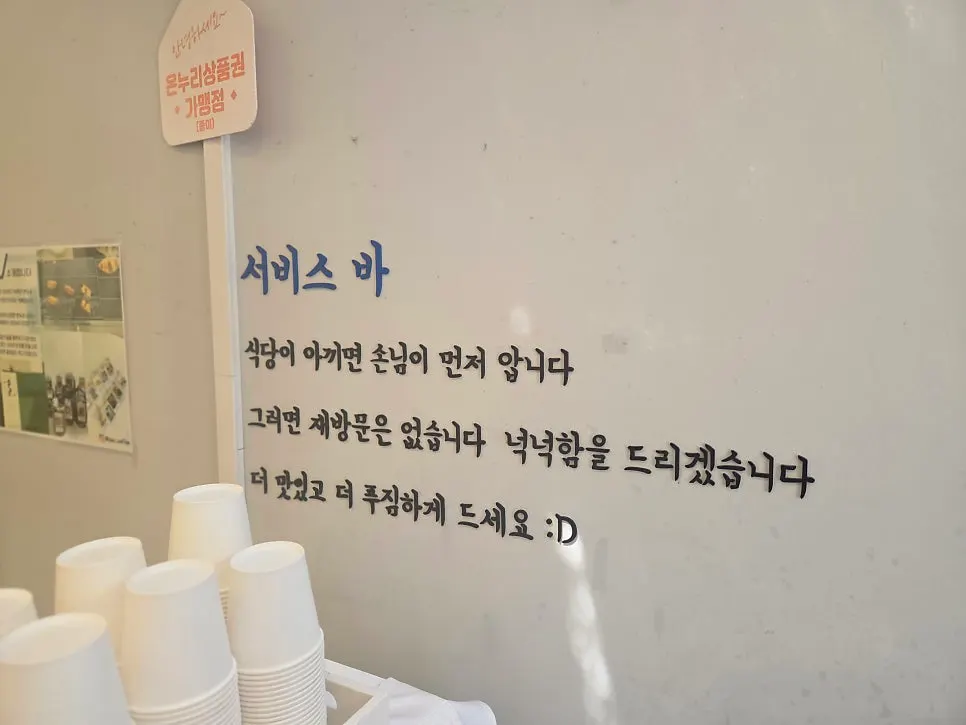 안녕하세요~
온누리상품권
가맹점
(종이)
서비스 바
식당이 아끼면 손님이 먼저 압니다
그러면 재방문은 없습니다 넉넉함을 드리겠습니다
더 맛있고 더 푸짐하게 드세요 :D